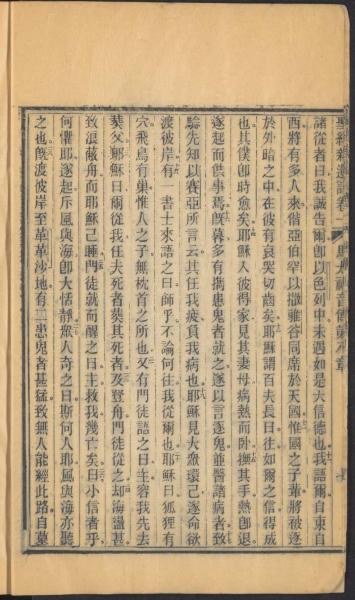 聖經新遺詔卷一 馬太福音傳第八章 七
諸從者曰我誠告爾卽以色列中未遇如是大信德也我語爾自東自
西將有多人來偕亞伯罕以撒雅谷同席於天國惟國之子輩將被逐
於外暗之中在彼有哀哭切齒矣耶穌謂百夫長曰往如爾之信得成
也其僕卽時愈矣耶穌入彼得家見其妻母病熱而臥撫其手熱卽退
遂起而供事焉旣暮多有攜患鬼者就之遂以言逐鬼並醫諸病者致
驗先知以賽亞所言云其任我疲負我病也耶穌見大衆環己逐命欲
渡彼岸有一書士來語之曰師乎不論何往我從爾也耶穌曰狐狸有
穴飛鳥有巢惟人之子無枕首之所也又有門徒語之曰主容我先去
葬父耶穌曰爾從我任夫死者葬其死者及登舟門徒從之却海盪甚
致浪蔽舟而耶穌己睡門徒就而醒之曰主救我幾亡矣曰小信者乎
何懼耶遂起斥風與海卽大恬靜衆人奇之曰斯何人耶風與海亦聽
之也旣渡彼岸至革革沙地有二患鬼者甚猛致無人能經此路自墓